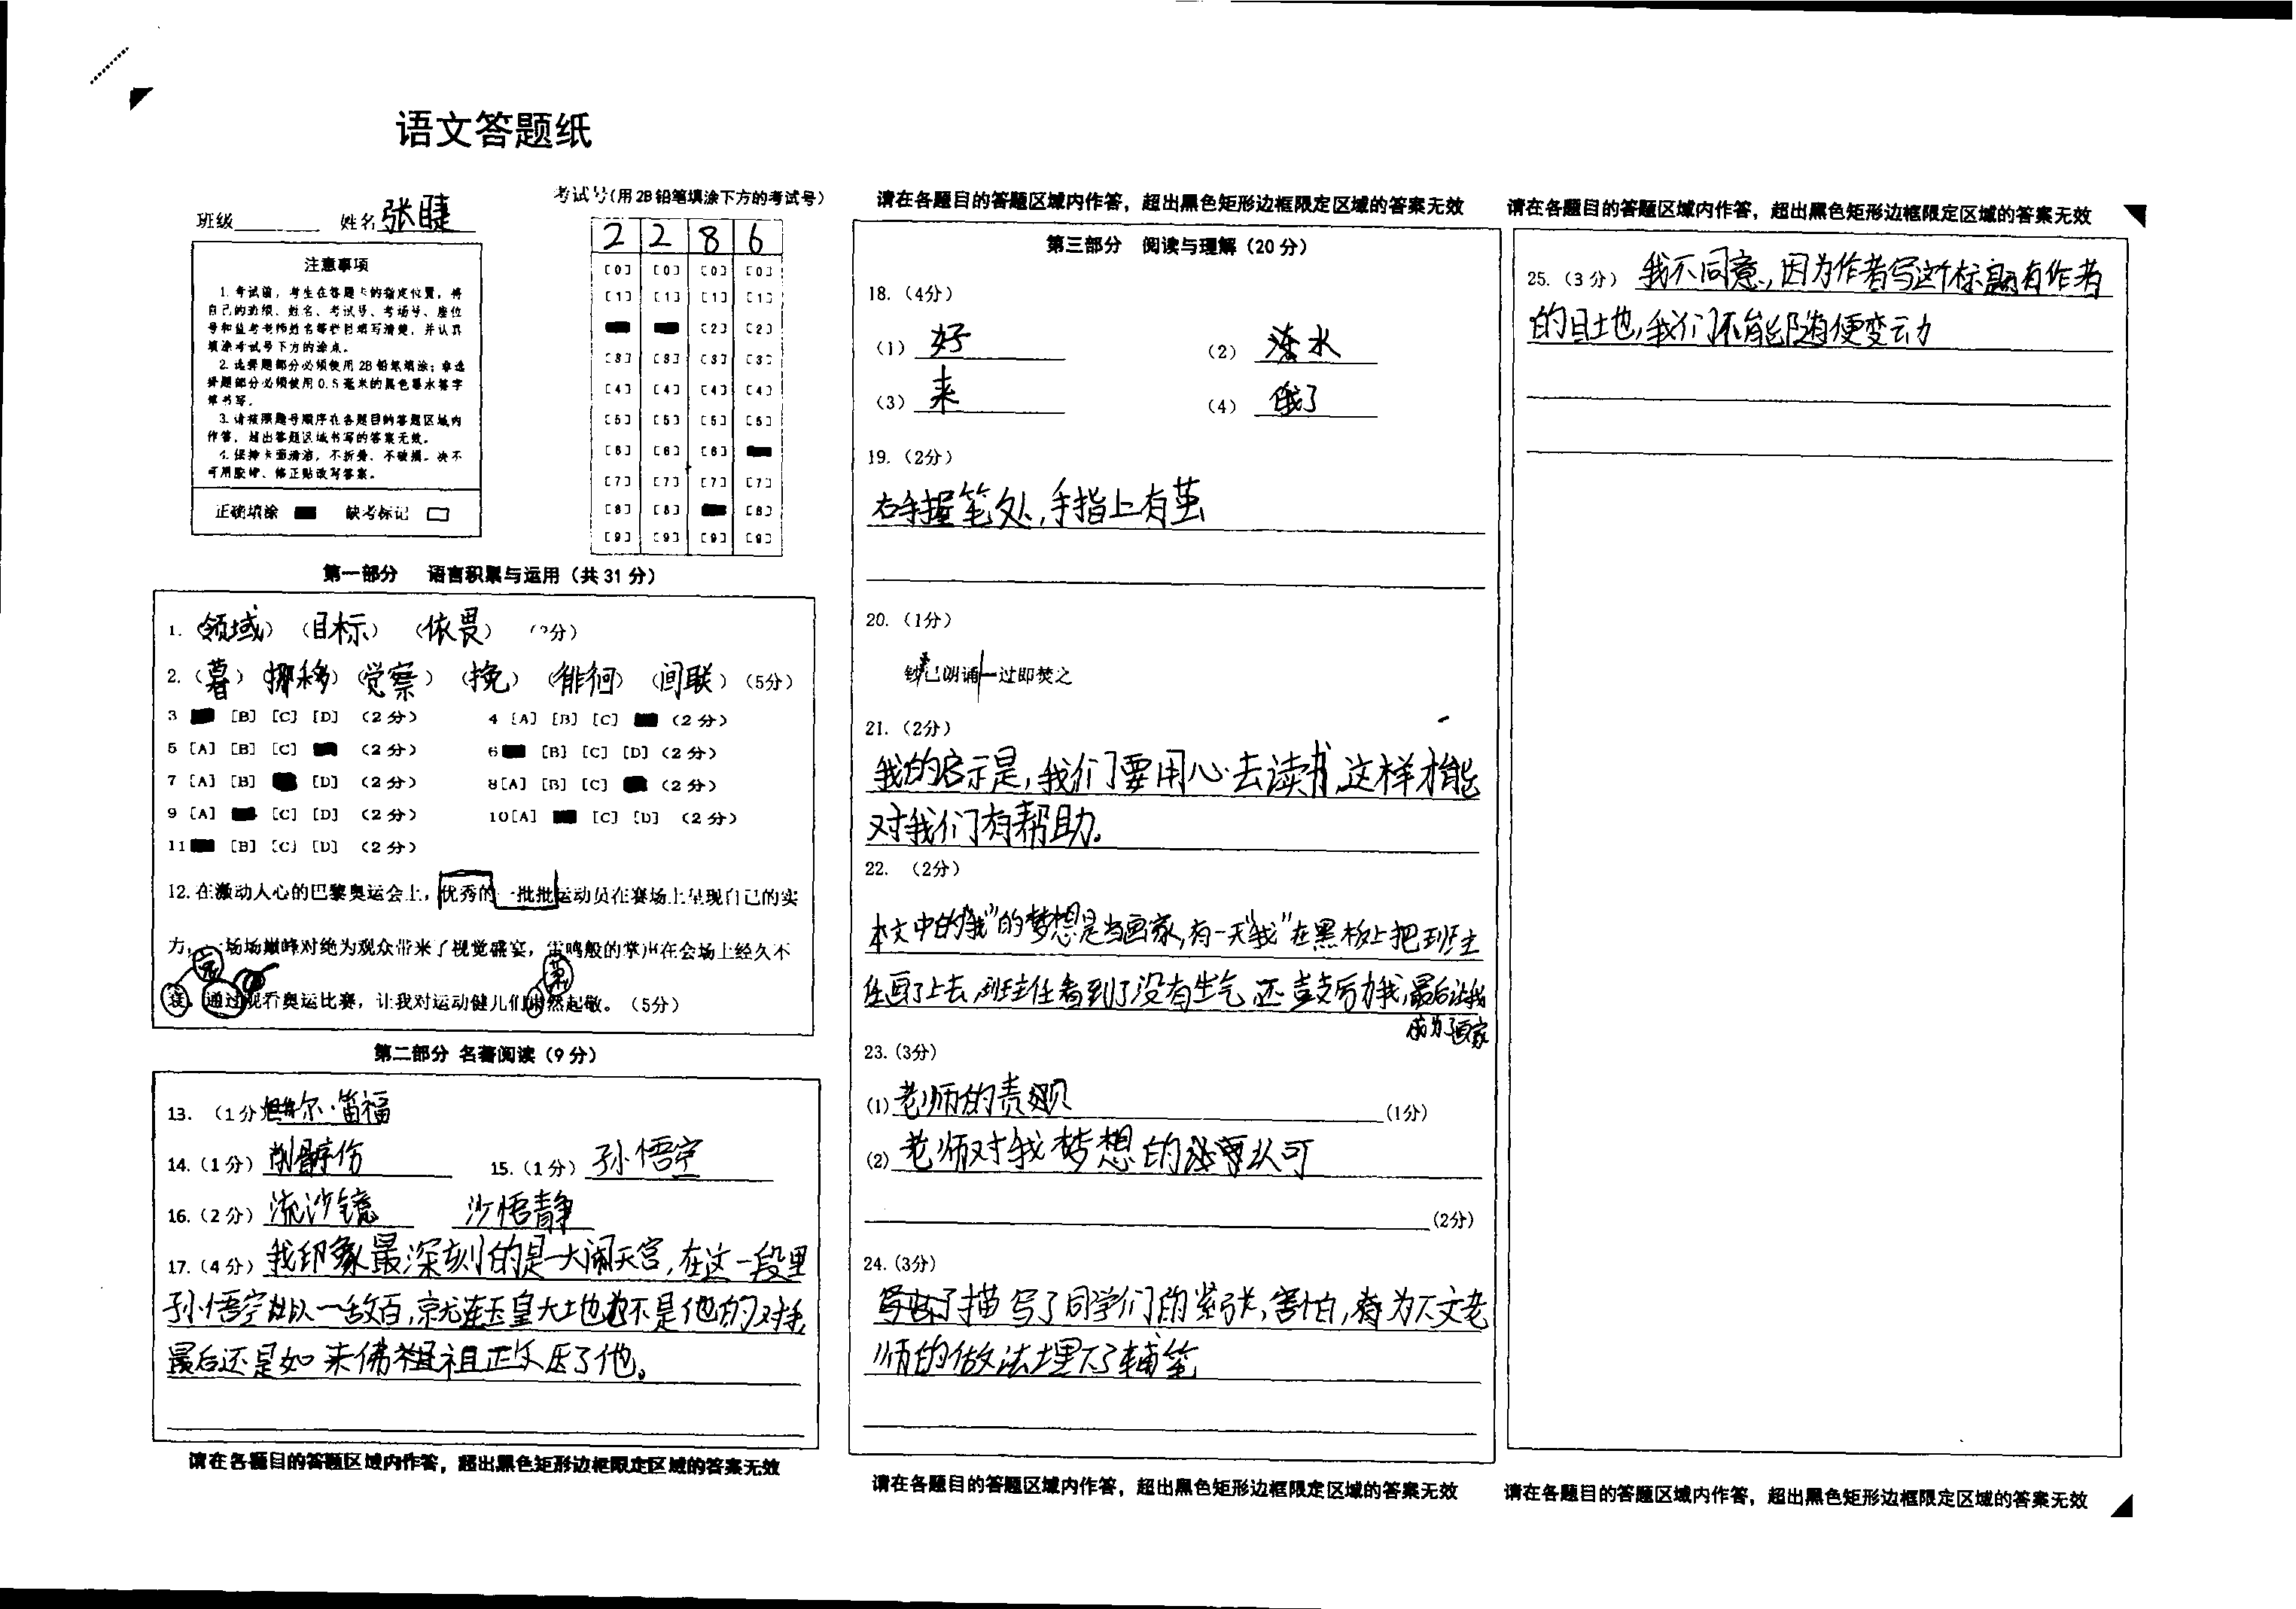 语文答题纸
班级 姓名 张睫
考试号(用2B铅笔填涂下方的考试号)
2 2 8 6
[0] [0] [0] [0]
[1] [1] [1] [1]
[2] [2]
[3] [3] [3] [3]
[4] [4] [4] [4]
[5] [5] [5] [5]
[6] [6] [6]
[7] [7] [7] [7]
[8] [8] [8]
[9] [9] [9] [9]
注意事项
1.考试前,考生在答题卡的指定位置,将
自己的班级、姓名、考试号、考场号、座位
号和监考老师姓名等栏目填写清楚,并认真
填涂考试号下方的涂点。
2.选择题部分必须使用2B铅笔填涂;非选
择题部分必须使用0.5毫米的黑色墨水签字
笔书写。
3.请按照题号顺序在各题目的答题区域内
作答,超出答题区域书写的答案无效。
4.保持卡面清洁,不折叠、不破损。决不
可用胶带、修正贴改写答案。
正确填涂 缺考标记
第一部分 语言积累与运用(共31分)
1.(领域)(目标)(依畏)
2.(暮)(挪移)(觉察)(挽)(徘徊)(间联)(5分)
3 [B] [C] [D] (2分) 4 [A] [B] [C] (2分)
5 [A] [B] [C] (2分) 6 [B] [C] [D] (2分)
7 [A] [B] [D] (2分) 8 [A] [B] [C] (2分)
9 [A] [C] [D] (2分) 10 [A] [C] [D] (2分)
11 [B] [C] [D] (2分)
12.在激动人心的巴黎奥运会上,优秀的一批批运动员在赛场上呈现自己的实
方,一场场巅峰对绝为观众带来了视觉盛宴,雷鸣般的掌声在会场上经久不
通过观看奥运比赛,让我对运动健儿们然起敬。(5分)
第二部分 名著阅读(9分)
13.(1分) 尔·笛福
14.(1分) 削 15.(1分) 孙悟空
16.(2分) 流沙镜 沙悟静
17.(4分) 我印象最深刻的是一大闹天宫,在这一段里
孙悟空以一敌百,就连玉皇大土地也不是他的对手,
最后还是如来佛祖祖正压了他。
请在各题目的答题区域内作答,超出黑色矩形边框限定区域的答案无效
请在各题目的答题区域内作答,超出黑色矩形边框限定区域的答案无效
第三部分 阅读与理解(20分)
18.(4分)
(1) 好 (2) 冻水
(3) 来 (4) 俄了
19.(2分)
右手握笔处,手指上有茧
20.(1分)
钞已朗诵一过即焚之
21.(2分)
我的启示是,我们要用心去读书,这样才能
对我们有帮助。
22.(2分)
本文中的“我”的梦想是当画家,有一天“我”在黑板上把班主
任画了上去,班主任看到了没有生气还鼓励我,最后让我
成为了画家
23.(3分)
(1) 老师的责 (1分)
(2) 老师对我梦想的认可
(2分)
24.(3分)
描写了同学们的紧张,害怕,为下文老
师的做法埋下了辅笔
请在各题目的答题区域内作答,超出黑色矩形边框限定区域的答案无效
请在各题目的答题区域内作答,超出黑色矩形边框限定区域的答案无效
25.(3分) 我不同意,因为作者写这个标题有作者
的目土也,我们不能随便变云力
请在各题目的答题区域内作答,超出黑色矩形边框限定区域的答案无效